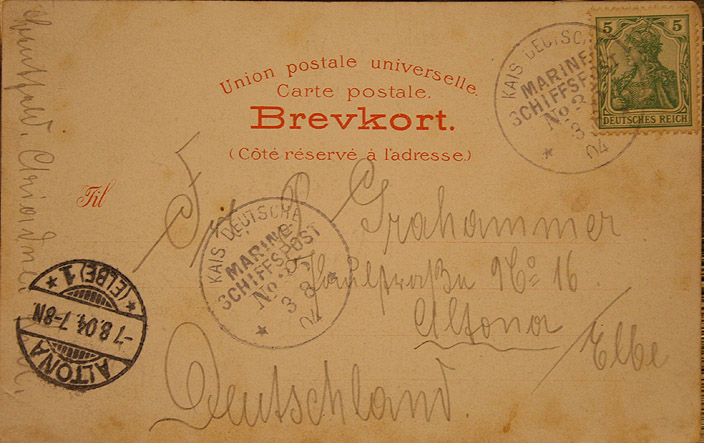 5
5
DEUTSCHES REICH
KAIS. DEUTSCHE
MARINE-
SCHIFFSPOST
No. 3
3
04
Union postale universelle.
Carte postale.
Brevkort.
(Côté réservé à l'adresse.)
Til
Grahammer
No 16
Altona
/Elbe
Deutschland.
KAIS. DEUTSCHE
MARINE-
SCHIFFSPOST
No. 3
3 8
04
ALTONA
-7.8.04, 7-8N.
* (ELBE) 1 *